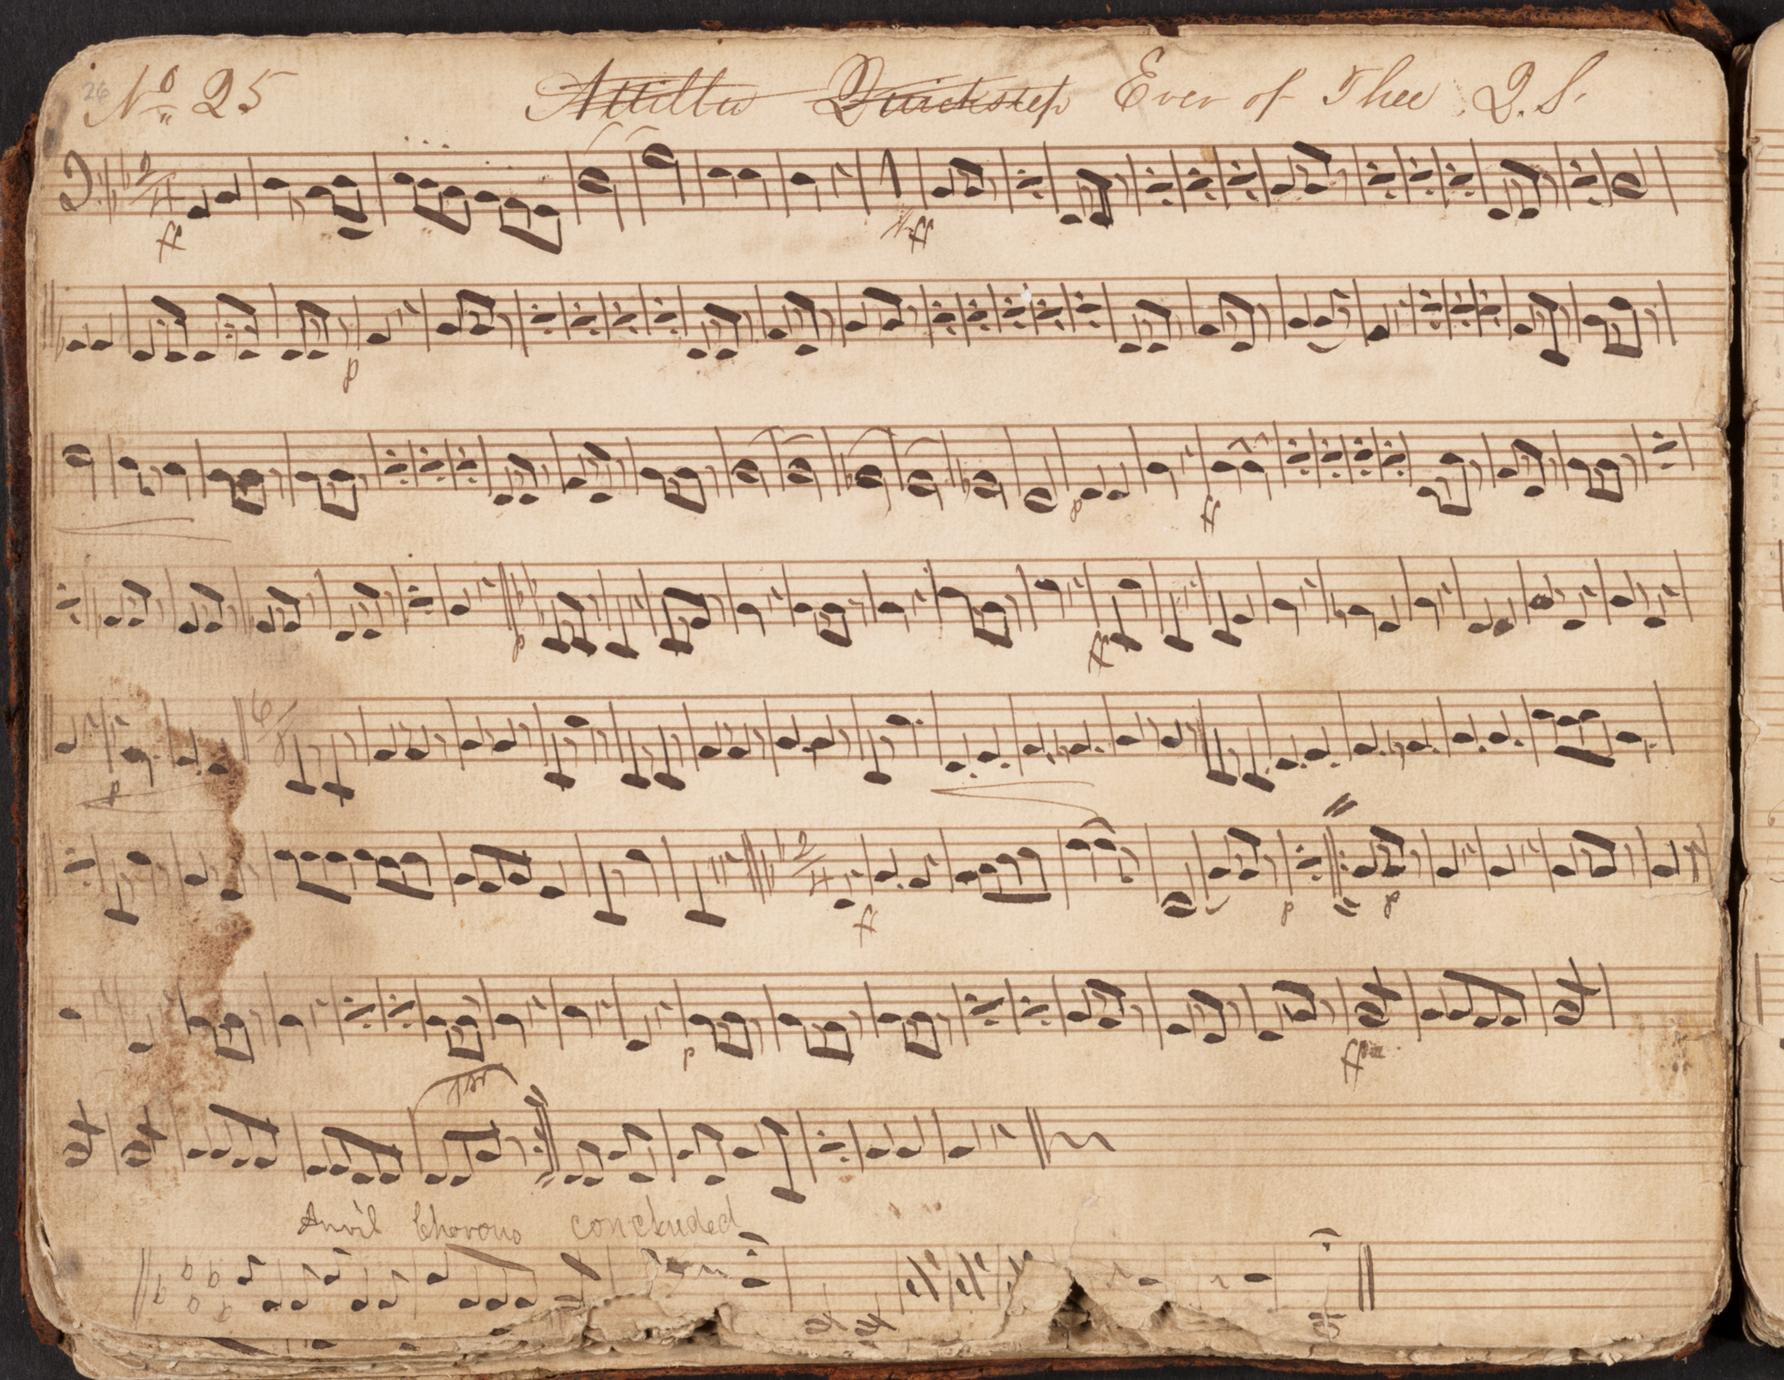 26 No. 25 Attilla Quickstep Ever of Thee Q.S.
2/4
ff
ff
p
p ff
p ff
6/8
p
2/4
ff p p
p ff
Anvil Chorous concluded